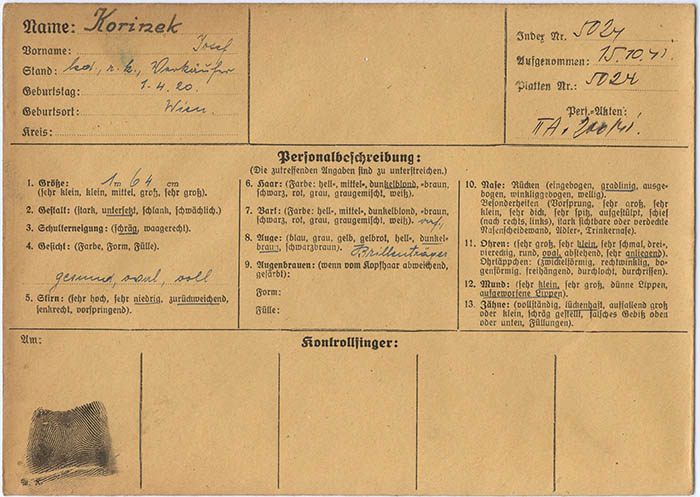 Name: Korinek
Vorname: Josef
Stand: led., r. k., Verkäufer
Geburtstag: 1.4.20.
Geburtsort: Wien
Kreis:
Index Nr. 5024
Aufgenommen: 15.10.41.
Platten Nr.: 5024
Pers.-Akten:
II A.
Personalbeschreibung:
(Die zutreffenden Angaben sind zu unterstreichen.)
1. Größe: 1 m 64 cm
(sehr klein, klein, mittel, groß, sehr groß).
2. Gestalt: (stark, untersetzt, schlank, schwächlich).
3. Schulterneigung: (schräg, waagerecht).
4. Gesicht: (Farbe, Form, Fülle).
gesund, oval, voll
5. Stirn: (sehr hoch, sehr niedrig, zurückweichend,
senkrecht, vorspringend).
6. Haar: (Farbe: hell-, mittel-, dunkelblond, -braun,
schwarz, rot, grau, graugemischt, weiß).
7. Bart: (Farbe: hell-, mittel-, dunkelblond, -braun,
schwarz, rot, grau, graugemischt, weiß).
8. Auge: (blau, grau, gelb, gelbrot, hell-, dunkel-
braun, schwarzbraun). Brillenträger
9. Augenbrauen: (wenn vom Kopfhaar abweichend,
gefärbt):
Form:
Fülle:
10. Nase: Rücken (eingebogen, gradlinig, ausge-
bogen, winkliggebogen, wellig).
Besonderheiten (Vorsprung, sehr groß, sehr
klein, sehr dick, sehr spitz, aufgestülpt, schief
(nach rechts, links), stark sichtbare oder verdeckte
Nasenscheidewand, Adler-, Trinkernase).
11. Ohren: (sehr groß, sehr klein, sehr schmal, drei-,
viereckig, rund, oval, abstehend, sehr anliegend).
Ohrläppchen: (zwickelförmig, rechtwinklig, bo-
genförmig, freihängend, durchlocht, durchrissen).
12. Mund: (sehr klein, sehr groß, dünne Lippen,
aufgeworfene Lippen).
13. Zähne: (vollständig, lückenhaft, auffallend groß
oder klein, schräg gestellt, falsches Gebiß oben
oder unten, Füllungen).
Am:
Kontrollfinger: